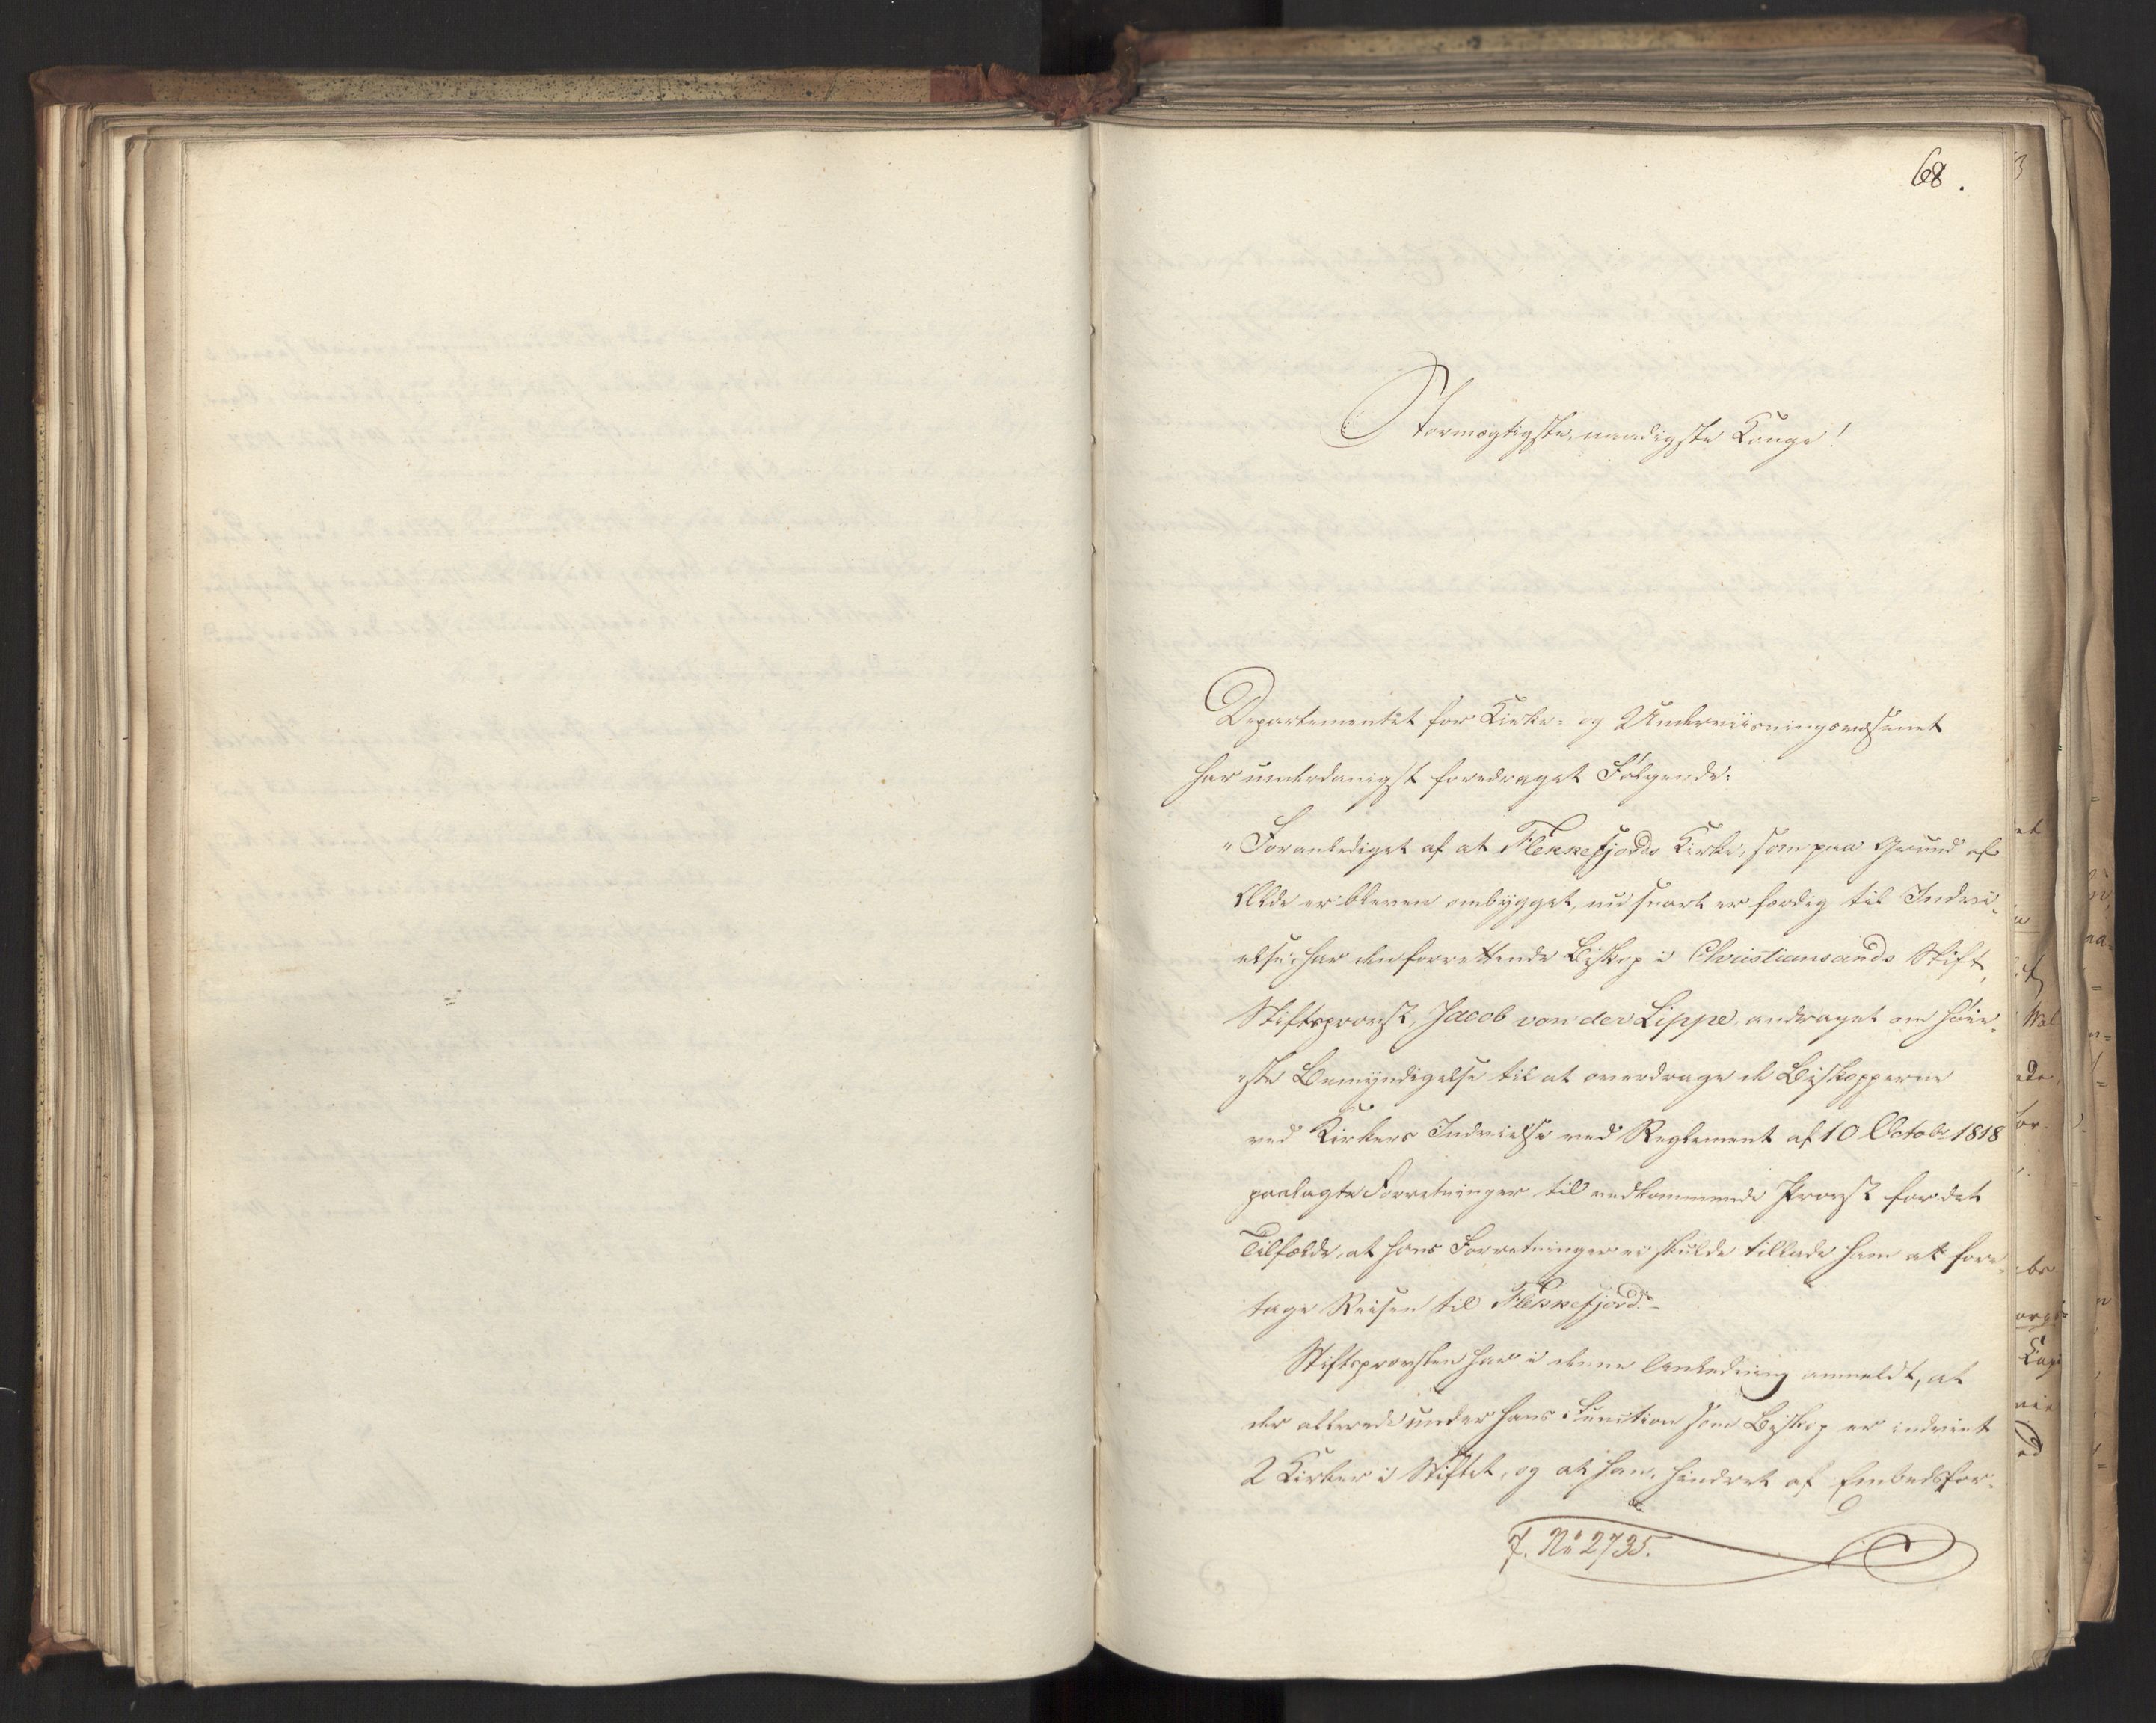 68.
Stormægtigste, naadigste Konge!
Departementet for Kirke- og Underviisningsvæsenet
har underdanigst foredraget Følgende:
"Foranlediget af at Flekkefjords Kirke, som paa Grund af
Ælde er bleven ombygget, nu snart er færdig til Indvi-
else, har den forrettende Biskop i Christiansands Stift,
Stiftsprovst, Jacob von der Lippe, andraget om høie-
ste Bemyndigelse til at overdrage de Biskopperne
ved Kirkers Indvielse ved Reglement af 10 Octobr 1818
paalagte Forretninger til vedkommende Provst for det
Tilfælde, at hans Forretninger ei skulde tillade ham at fore-
tage Reisen til Flekkefjord.
Stiftsprovsten har i denne Anledning anmeldt, at
der allerede under hans Function som Biskop er indviet
2 Kirker i Stiftet, og at han, hindret af Embedsfor-
J. No 2735.